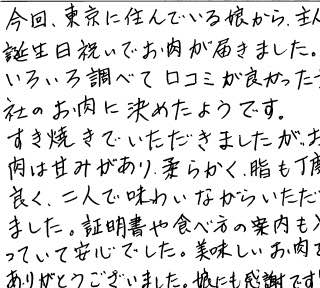 今回、東京に住んでいる娘から、主人
誕生日祝いでお肉が届きました。
いろいろ調べて口コミが良かった
社のお肉に決めたようです。
すき焼きでいただきましたが、お
肉は甘みがあり、柔らかく、脂も丁度
良く、二人で味わいながらいただ
ました。証明書や食べ方の案内も入
っていて安心でした。美味しいお肉を
ありがとうございました。娘にも感謝です!